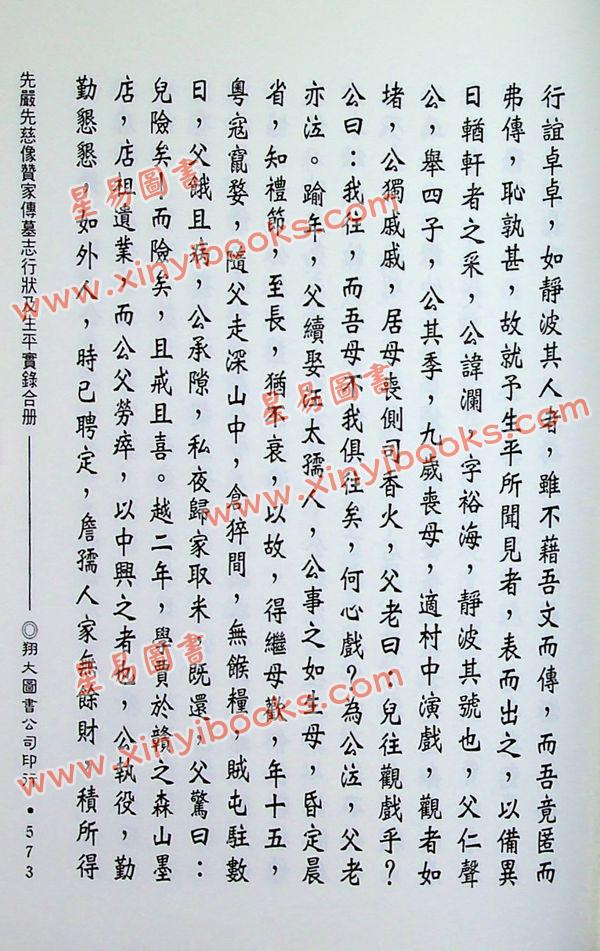 行誼卓卓，如靜波其人者，雖不藉吾文而傳，而吾竟匿而
弗傳，恥孰甚，故就予生平所聞見者，表而出之，以備異
日輶軒者之采，公諱瀾，字裕海，靜波其號也，父仁聲
公，舉四子，公其季，九歲喪母，適村中演戲，觀者如
堵，公獨戚戚，居母喪側司香火，父老曰：兒往觀戲乎？
公曰：我往，而吾母不我俱往矣，何心戲？為公泣，父老
亦泣。踰年，父續娶汪太孺人，公事之如生母，昏定晨
省，知禮節，至長，猶不衰，以故，得繼母歡，年十五，
粵寇竄婺，隨父走深山中，倉猝間，無餱糧，賊屯駐數
日，父餓且病，公承隙，私夜歸家取米，既還，父驚曰：
兒險矣！而險矣，且戒且喜。越二年，學賈於贛之森山墨
店，店祖遺業，而公父勞瘁，以中興之者也，公執役，勤
勤懇懇，如外人，時已聘定，詹孺人家無餘財，積所得
先嚴先慈像贊家傳墓志行狀及生平實錄合册
◎翔大圖書公司印行•573
星易圖書
www.xinyibooks.com
星易圖書
www.xinyibooks.com
星易圖書
www.xinyibooks.com